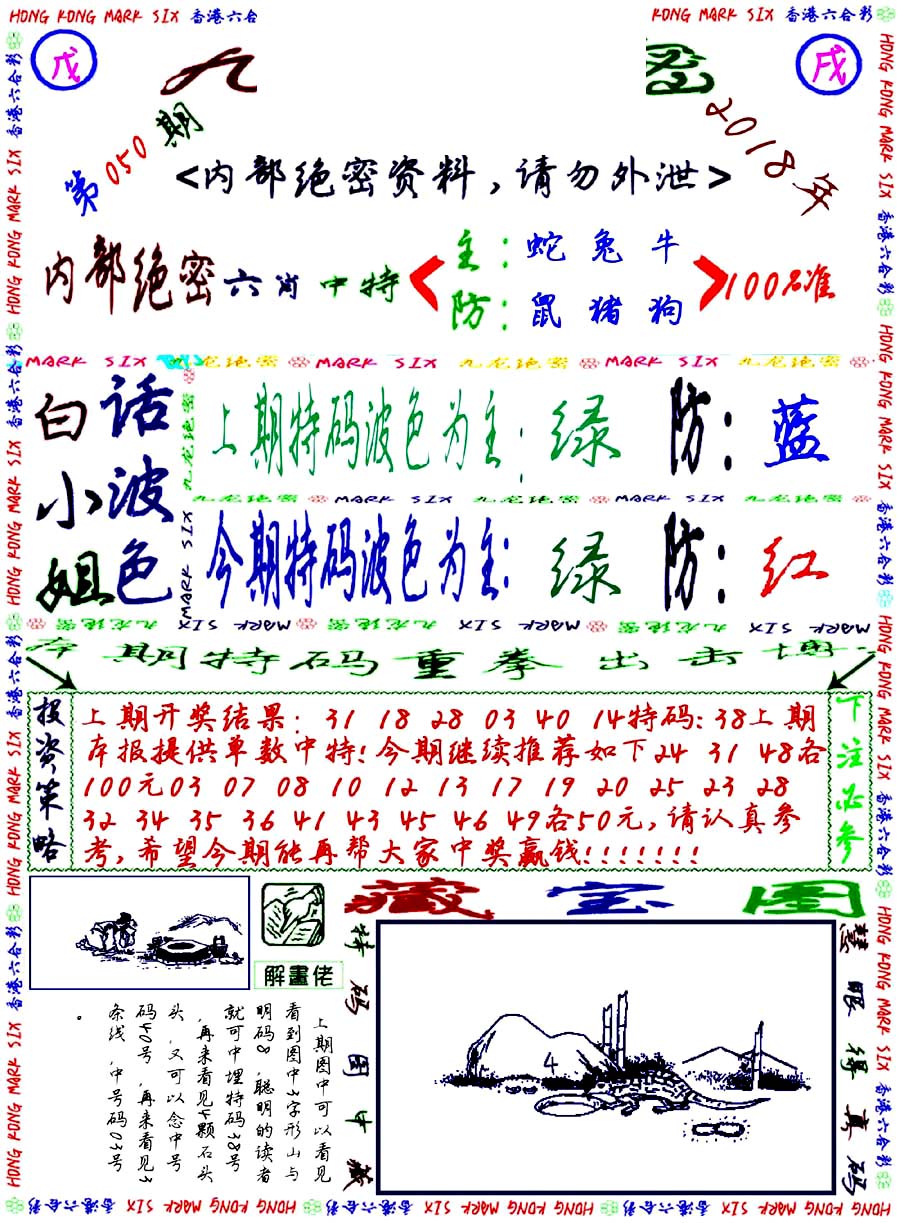 HONG KONG MARK SIX 香港六合
KONG MARK SIX 香港六合彩
戊
九
密
戌
第050期
2018年
<内部绝密资料,请勿外泄>
内部绝密六肖中特
主:蛇兔牛
防:鼠猪狗
100%准
MARK SIX 九龙绝密 MARK SIX 九龙绝密 MARK SIX 九龙绝密
白小姐
话波色
上期特码波色为主:绿 防:蓝
九龙绝密 MARK SIX 九龙绝密 MARK SIX 九龙绝密
今期特码波色为主:绿 防:红
九龙绝密 MARK SIX 九龙绝密 MARK SIX 九龙绝密 MARK SIX
本期特码重拳出击博
投资策略
上期开奖结果: 31 18 28 03 40 14特码:38上期
本报提供单数中特!今期继续推荐如下24 31 48各
100元03 07 08 10 12 13 17 19 20 25 23 28
32 34 35 36 41 43 45 46 49各50元,请认真参
考,希望今期能再帮大家中奖赢钱!!!!!!!
下注必参
藏宝图
解畫佬
上期图中可以看见
看到图中3字形山与
明码8,聪明的读者
就可中埋特码38号
,再来看见4颗石头
头,又可以念中号
码40号,再来看见3
条线,中号码03号
。
特码图中藏
4
慧眼得真码
HONG KONG MARK SIX 香港六合彩